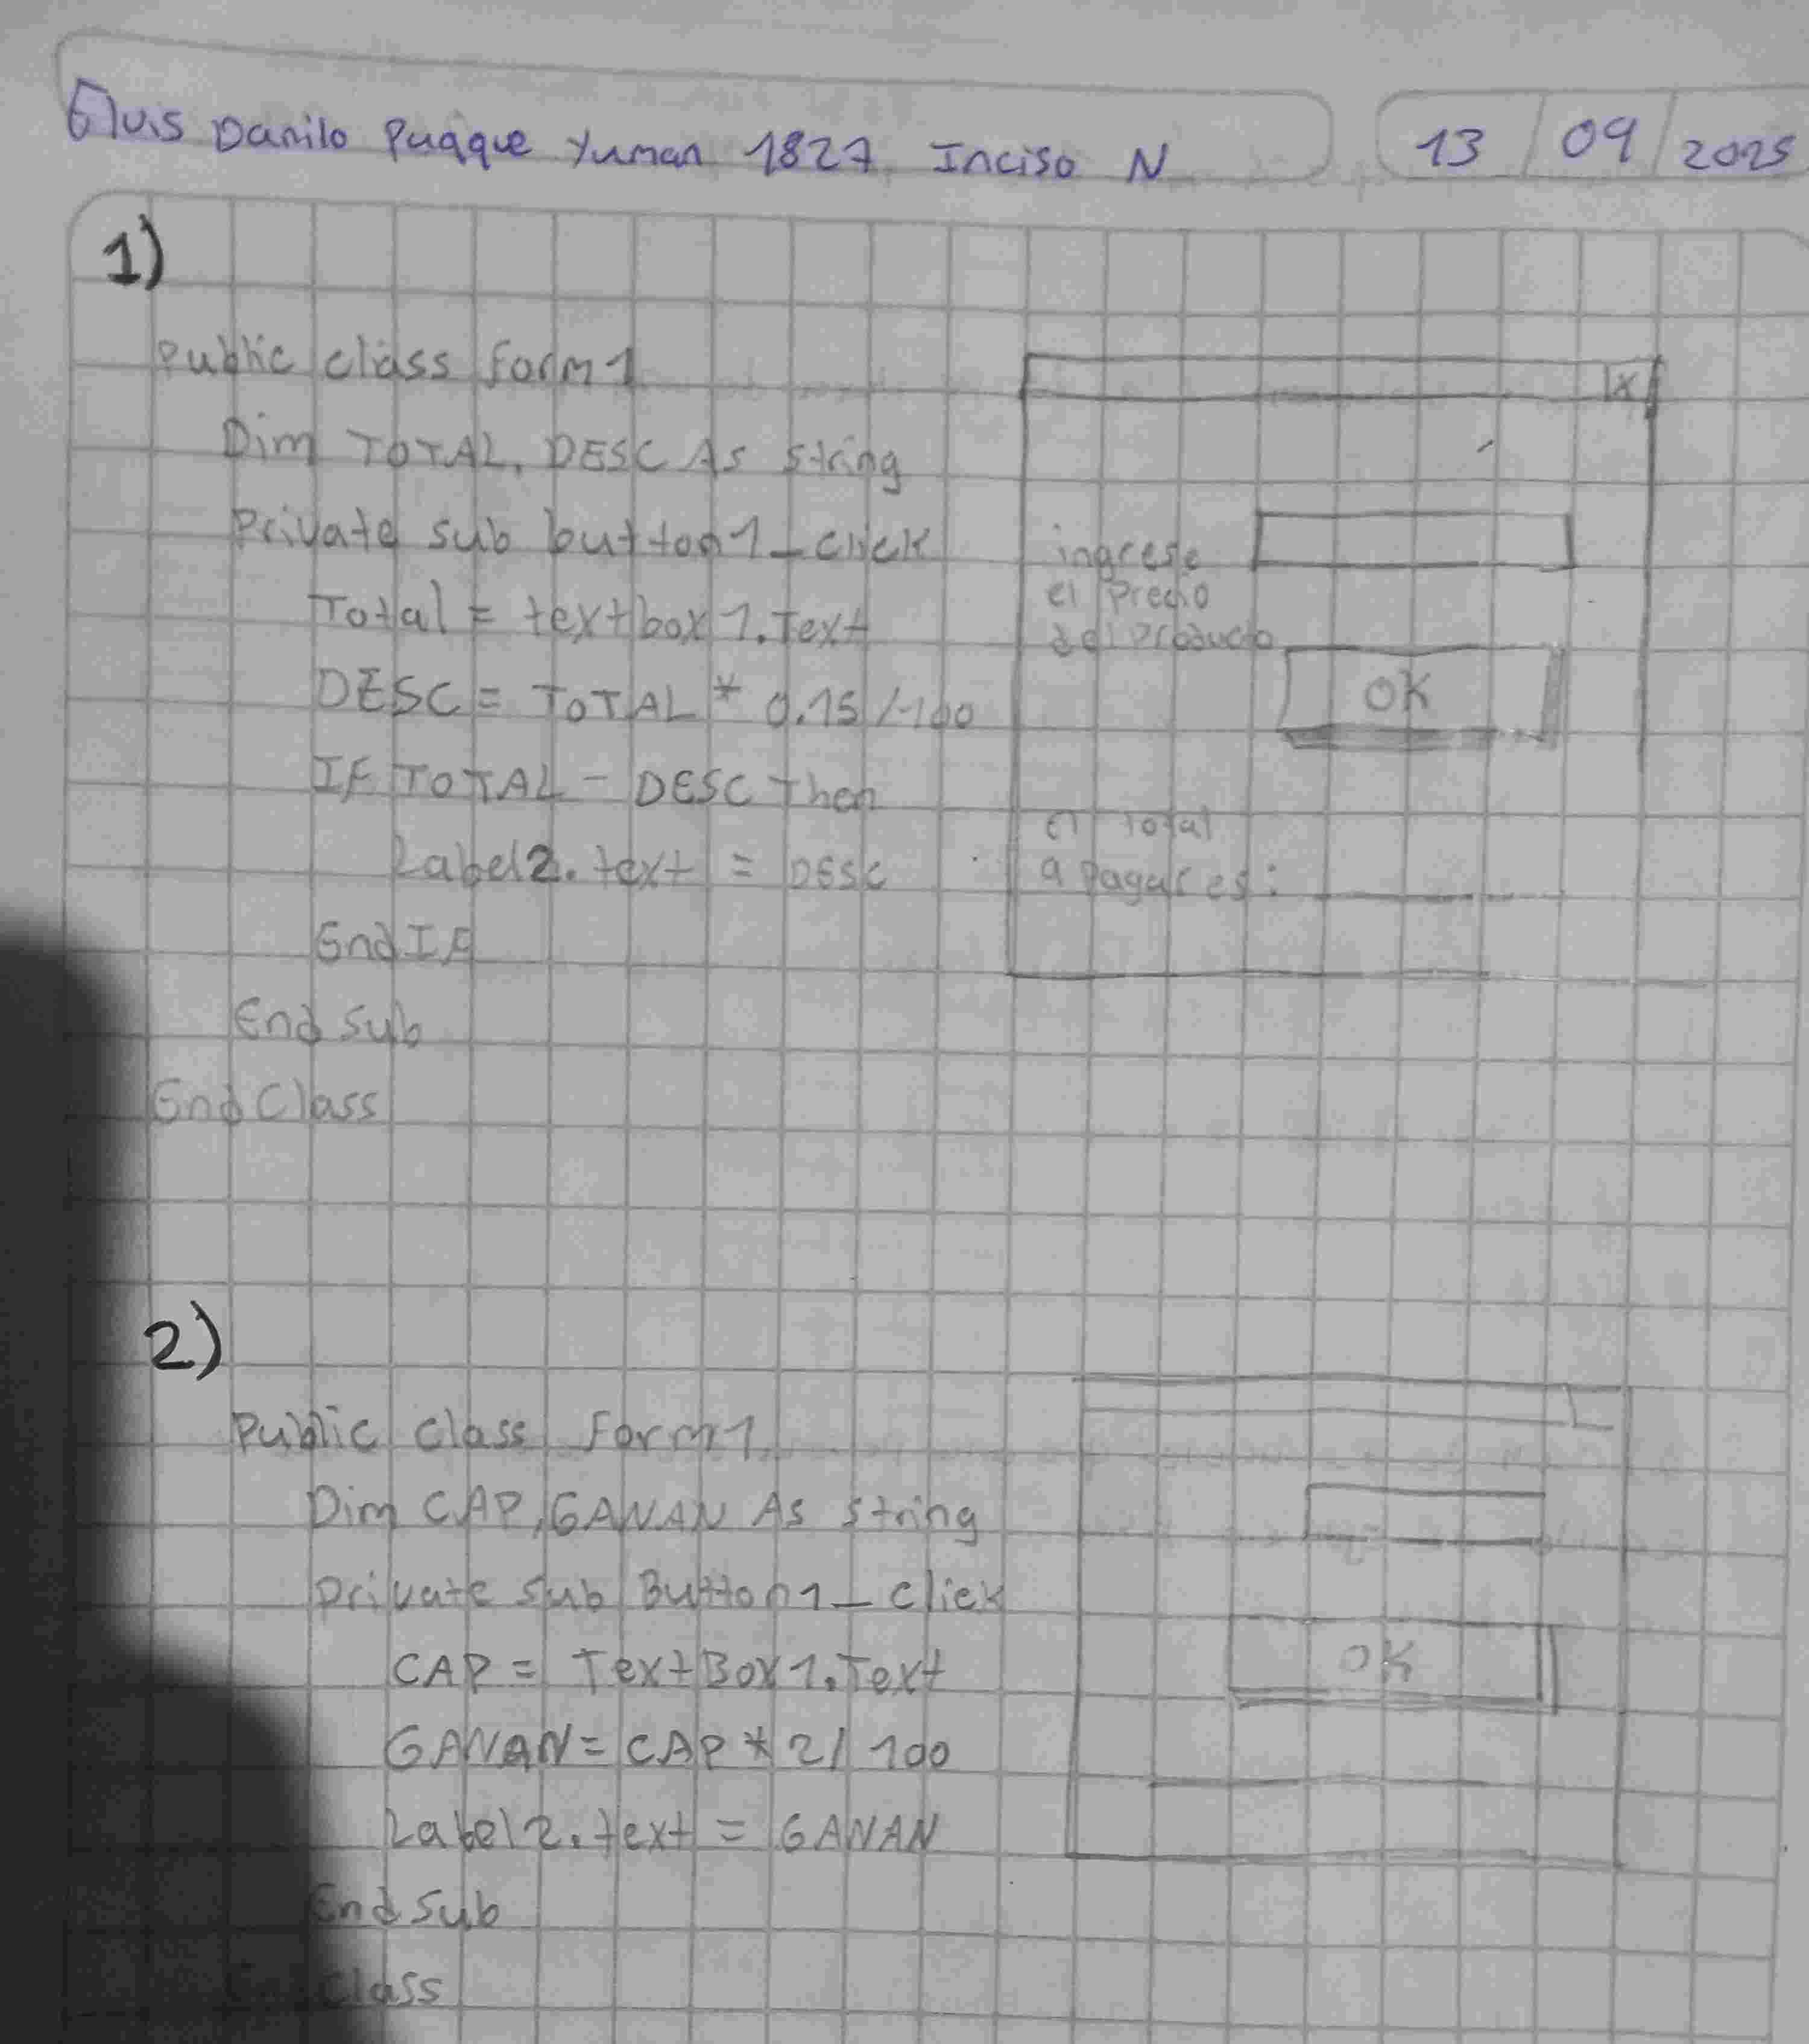 Elvis Danilo Puaque Yuman 1827 Inciso N
13 / 09 / 2025
1)
Public class Form1
Dim TOTAL, DESC As string
Private sub button1_click
Total = textbox1.Text
DESC = TOTAL * 0.15 / 100
IF TOTAL - DESC Then
Label2.text = DESC
End IF
End Sub
End Class
X
ingrese
el Precio
del Producto
OK
el total
a Pagar es:
2)
Public Class Form1
Dim CAP, GANAN As string
Private Sub Button1_Click
CAP = TextBox1.Text
GANAN = CAP * 2 / 100
Label2.text = GANAN
End Sub
Class
OK